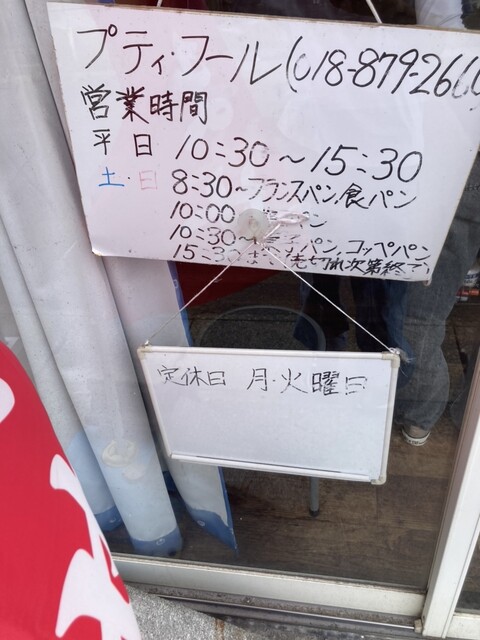 プティ・フール(018-879-266
営業時間
平日 10:30～15:30
土・日 8:30～フランスパン,食パン
10:00 パン
10:30～ パン,コッペパン
15:30 売切れ次第終了
定休日 月・火曜日